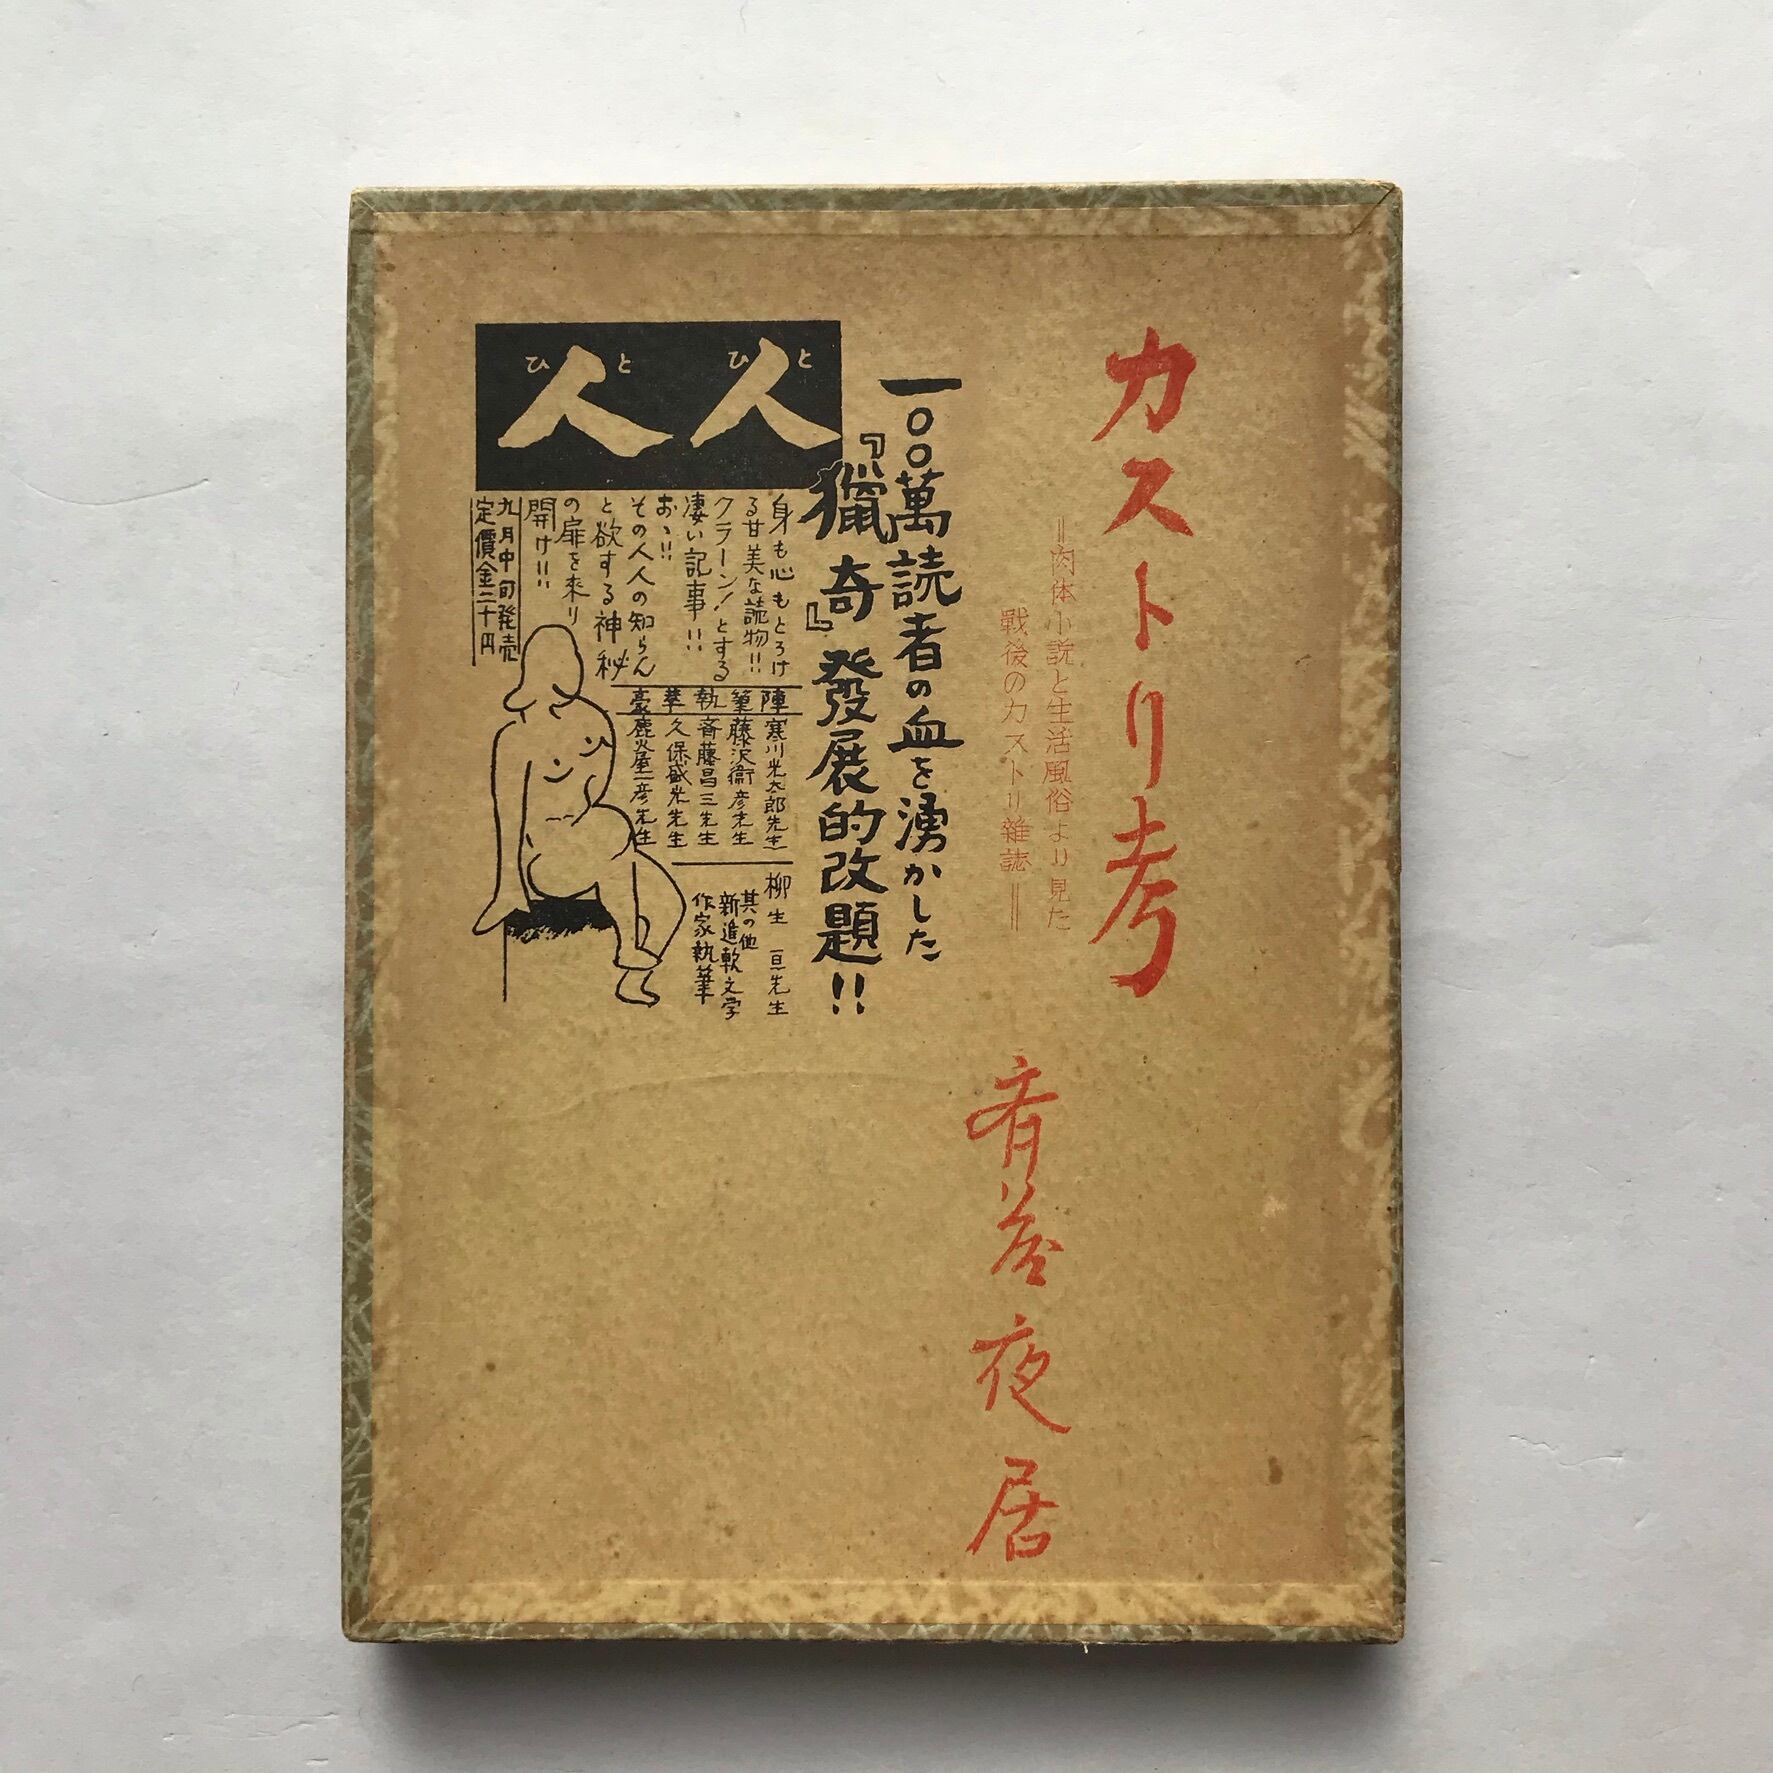 カストリ考
＝肉体小説と生活風俗より見た
戰後のカストリ雜誌＝
斉藤夜居
一〇〇萬読者の血を湧かした
『獵奇』發展的改題!!
人人
ひと ひと
身も心もとろけ
る甘美な読物!!
クラーン!とする
凄い記事!!
おゝ!!
その人人の知らん
と欲する神秘
の扉を来り
開け!!
九月中旬発売
定價金二十円
豪華執筆陣
寒川光太郎先生
藤沢衞彦先生
斉藤昌三先生
久保盛光先生
鹿火屋一彦先生
柳生 亘先生
其の他
新進軟文学
作家執筆